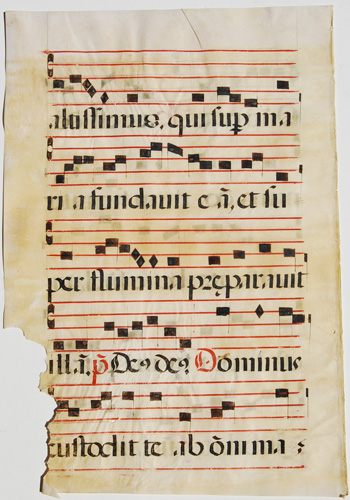 altissimus, qui sup ma
ria fundavit eā, et su
per flumina pręparavit
illā, p̄ Deꝰ deꝰ Dominus
custodit te ab ōni ma ;